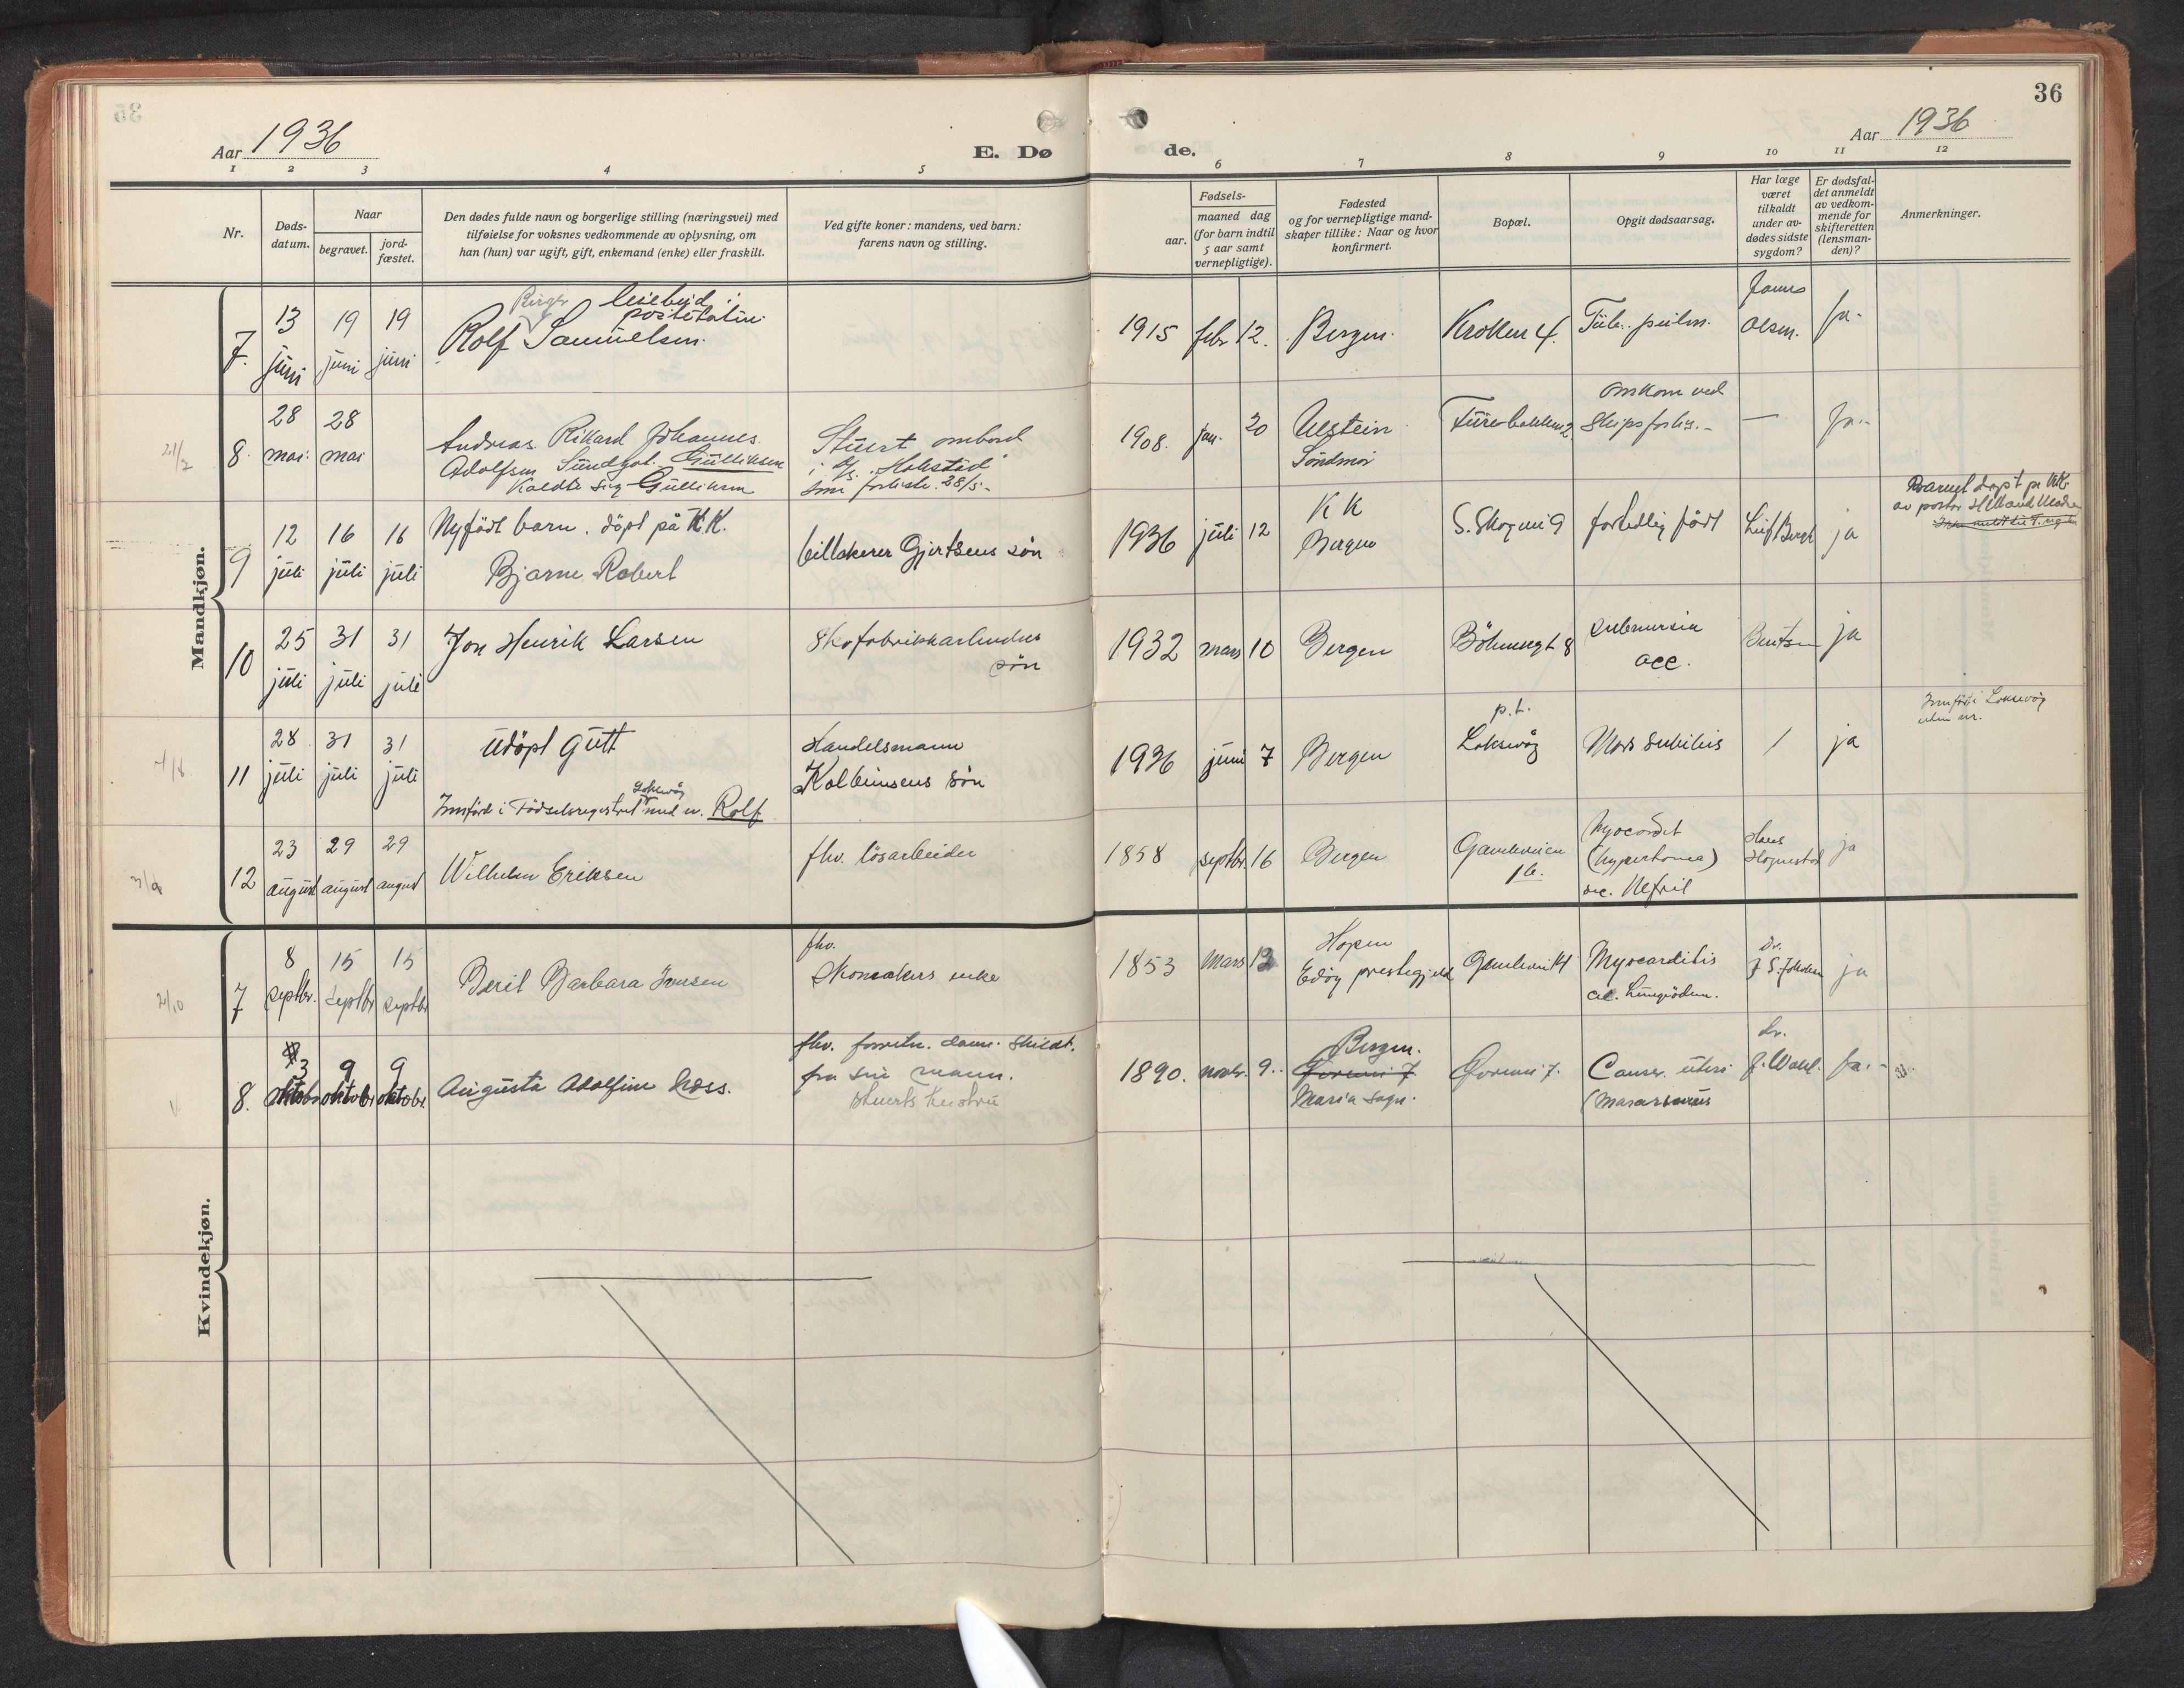 36
Aar 1936
E. Dø
de.
Aar 1936
1 2 3 4 5
6 7 8 9 10 11 12
Nr.
Døds-
datum.
Naar
begravet.
jord-
fæstet.
Den dødes fulde navn og borgerlige stilling (næringsvei) med
tilføielse for voksnes vedkommende av oplysning, om
han (hun) var ugift, gift, enkemand (enke) eller fraskilt.
Ved gifte koner: mandens, ved barn:
farens navn og stilling.
Fødsels-
aar.
maaned dag
(for barn indtil
5 aar samt
vernepligtige).
Fødested
og for vernepligtige mand-
skaper tillike: Naar og hvor
konfirmert.
Bopæl.
Opgit dødsaarsag.
Har læge
været
tilkaldt
under av-
dødes sidste
sygdom?
Er dødsfal-
det anmeldt
av vedkom-
mende for
skifteretten
(lensman-
den)?
Anmerkninger.
Mandkjøn.
7. 13 juni 19 juni 19 juni
Birger
Rolf Samuelsen.
1915 febr 12. Bergen. Krokken 4. Tub. pulm. Olsen. Ja.
21/7
8. 28 mai. 28 mai
Andreas Rikard Johannes
Adolfsen Gulliksen
Kaldte sig Gulliksen
Stuert ombord
som forliste 28/5.
1908. jan. 20 Ulstein
Omkom ved
Skipsforlis. — Ja.
9 12 juli 16 juli 16 juli
Nyfödt barn. döpt på K.K.
Bjarne Robert
billakerer Gjertsens sön
1936 juli 12 K K
Bergen S. Skogvei 9 fortidlig födt Leif Bergh ja
Barnet döpt på KK.
10 25 juli 31 juli 31 juli
Jon Henrik Larsen
Skofabrikkarbeiders
sön
1932 mars 10 Bergen submersia
acc. ja
11 28 juli 31 juli 31 juli
Udöpt Gutt
Innförd i Födselsregistret med nv. Rolf
Handelsmann
Kolbeinsens sön
1936 juni 7 Bergen
p.t.
Loksevåg Mors subitus / ja
Innfört i Loksevåg
uten nr.
12 23 august 29 august 29 august
Wilhelm Eriksen
fhv. lösarbeider
1858 septbr 16 Bergen Gamleveien
16. Myocardit
(hypertonia)
Nefrit ja
Kvindekjøn.
2/10
7 8 septbr. 15 septbr 15 septbr
Berit Barbara Jensen
fhv.
Skomakers enke
1853 Mars 12 Hopen
Edöy prestegjeld Myocarditis
ac. Lungeödem. dr. ja
8. 3 oktobr 9 oktobr 9 oktobr.
Augusta Adolfine Næss.
fra sin mann.
Stuerts hustru
1890. novbr. 9. Bergen.
Øvrevei 7
Maria sogn. Øvrevei 7. Cancer. uteri dr. Ja.